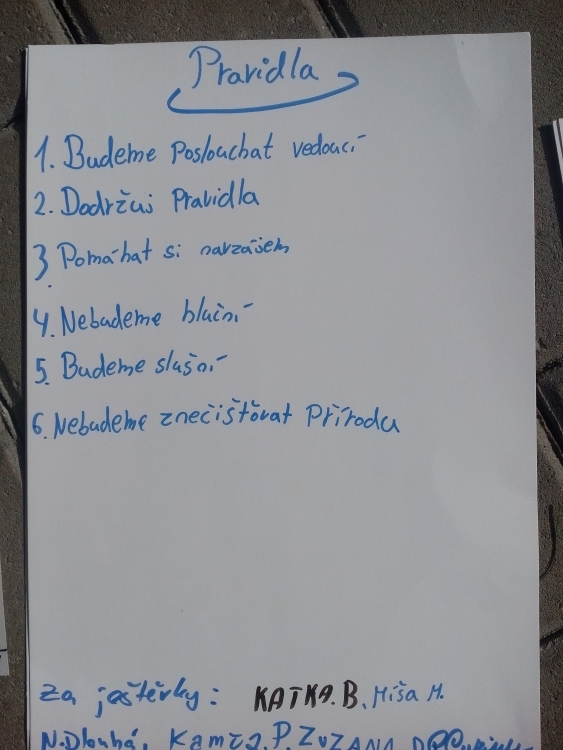 Pravidla
1. Budeme Poslouchat vedoucí
2. Dodržuj Pravidla
3. Pomáhat si navzájem
4. Nebudeme hluční
5. Budeme slušní
6. Nebudeme znečišťovat Přírodu
zaještěrky: KATKA.B, Míša M.
N.Dlouhá, P. ZUZANA